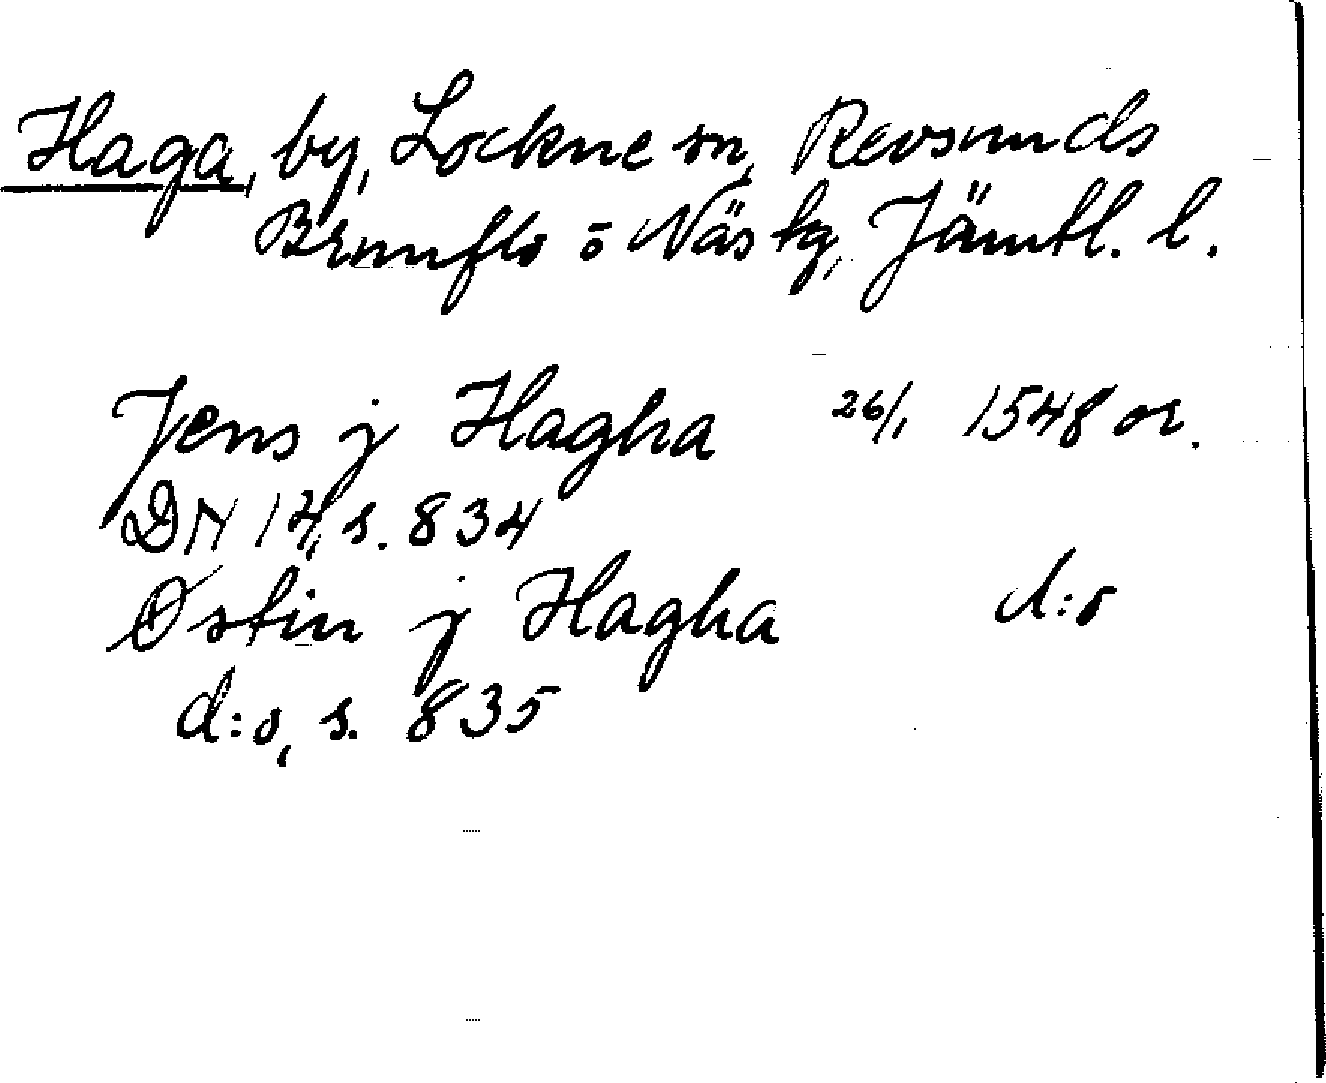 Haga, by, Lockne sn, Revsunds
Brunflo o Näs tg, Jämtl. l.
Jens j Hagha 26/1 1548 or.
DN 14, s. 834
Østin j Hagha d:o
d:o, s. 835